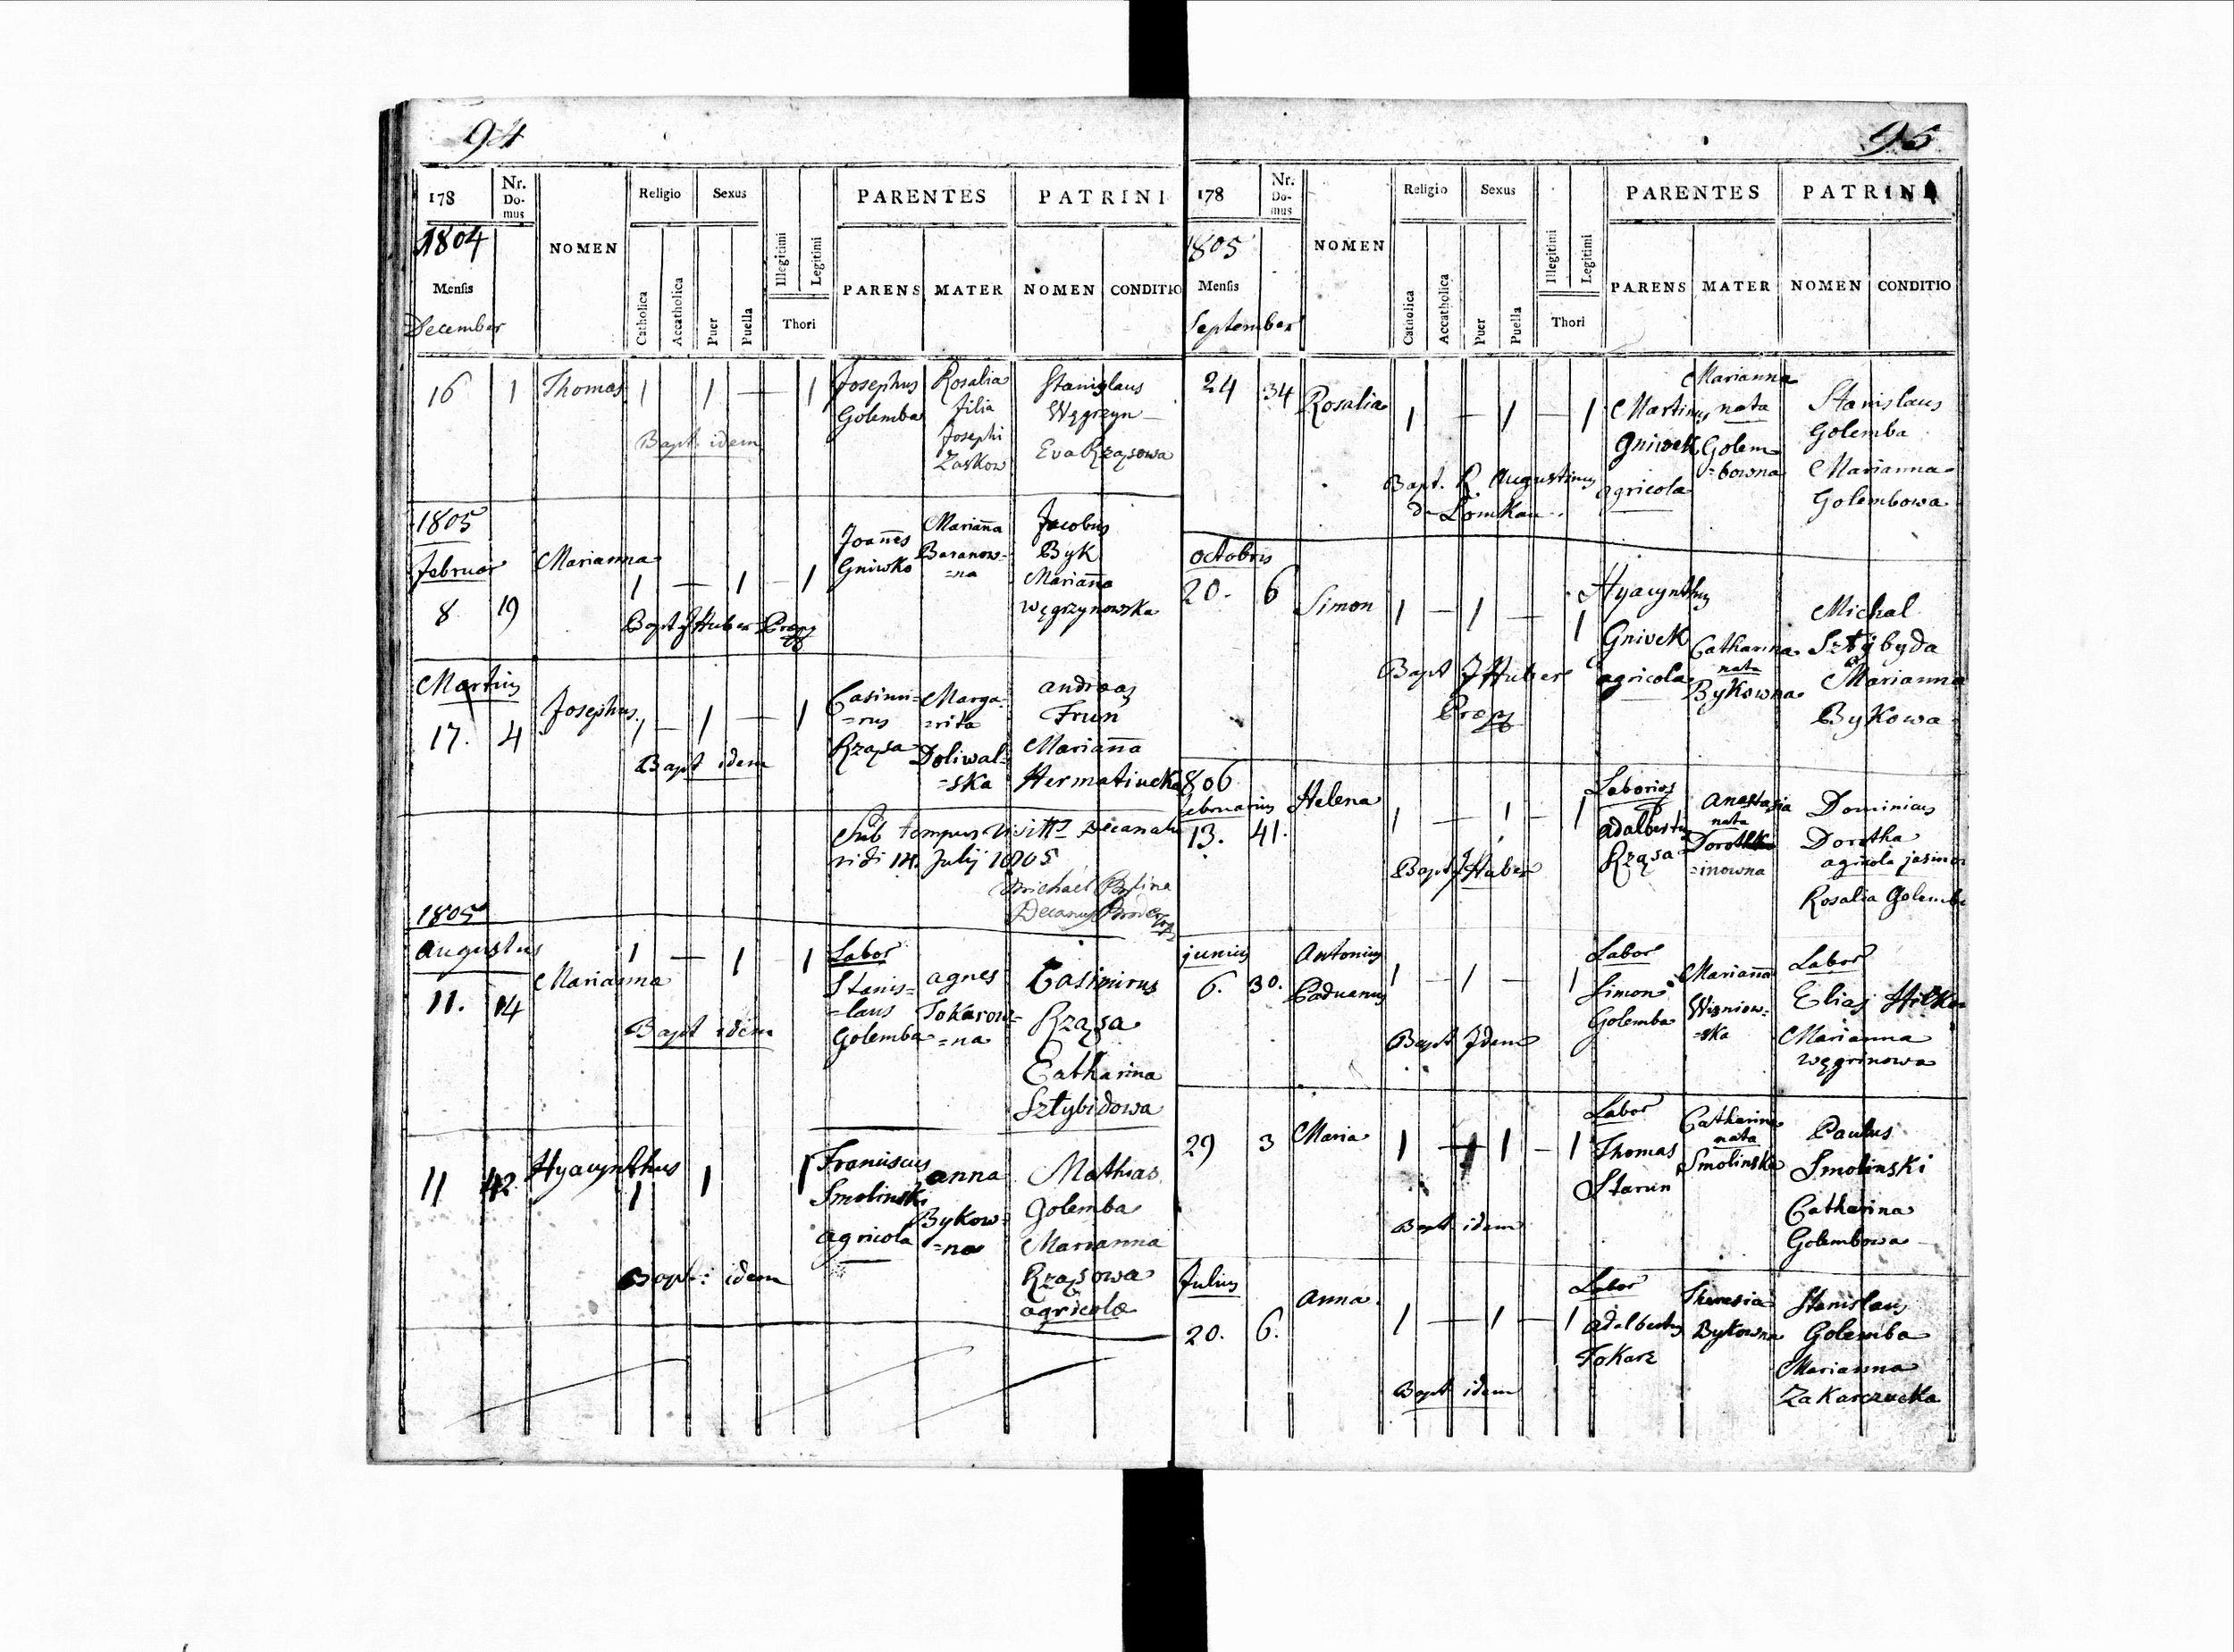 94
178
Nr. Domus
NOMEN
Religio
Sexus
PARENTES
PATRINI
1804
Mensis
December
Catholica
Accatholica
Puer
Puella
Illegitimi
Legitimi
Thori
PARENS
MATER
NOMEN
CONDITIO
16 1 Thomas 1 1 — 1 Josephus Rosalia Stanislaus
Golemba filia Węgrzyn
Josephi Eva Rząsowa
Zaskow
Bapt. idem
1805
Februar Marianna 1 — 1 — 1 Joañes Mariañna Jacobus
8 19 Gniwko Baranow= Byk
=na Mariañna
Węgrzynowska
Bapt J Huber Præp
Martius
17. 4 Josephus 1 — 1 — 1 Casimi= Marga= Andreas
=rus =rita Trun
Rząsa Doliwal= Mariañna
=ska Hermatiucka
Bapt idem
Sub tempus Visitt Decanalis
vidi 14. Julij 1805
Michael
Decanus Brod
1805
Augustus 1 — 1 — 1 Labor
11. 14 Marianna Stanis= Agnes Casimirus
=laus Tokarow= Rząsa
Golemba =na Catharina
Sztybidowa
Bapt idem
11 42 Hyacynthus 1 1 1 Franciscus Anna Mathias
Smolinski Bykow= Golemba
agricola =na Marianna
Rząsowa
agricolæ
Bapt: idem
95
178
Nr. Domus
NOMEN
Religio
Sexus
PARENTES
PATRINI
1805
Mensis
September
Catholica
Accatholica
Puer
Puella
Illegitimi
Legitimi
Thori
PARENS
MATER
NOMEN
CONDITIO
24 34 Rosalia 1 — 1 — 1 Martinus Marianna Stanislaus
Gniwek nata Golemba
agricola Golem= Marianna
=bowna Golembowa
Bapt. R. Augustinus
de Lomkau
Octobris
20. 6 Simon 1 — 1 — 1 Hyacynthus Catharina Michal
Gnivek nata Sztÿbyda
agricola Bykowna Marianna
Bykowa
Bapt J Huber
Præp
806
Februarius Helena 1 — 1 — 1 Laborios Anastasia Dominicus
13. 41. Adalbertus nata Dorotha
Rząsa =inowna agricola
Rosalia Golemb
Bapt J Huber
Junius Antonius 1 — 1 — 1 Labor Mariañna Labor
6. 30. Paduanus Simon Wisniow= Elias
Golemba =ska Marianna
Węgrinowa
Bapt Idem
29 3 Maria 1 — 1 — 1 Labor Catharina Paulus
Thomas nata Smolinski
Starun Smolinska Catharina
Golembowa
Bapt idem
Julius
20. 6. Anna 1 — 1 — 1 Labor Theresia Stanislaus
Adalbertus Bykowna Golemba
Tokarz Marianna
Zakarczucka
Bapt idem